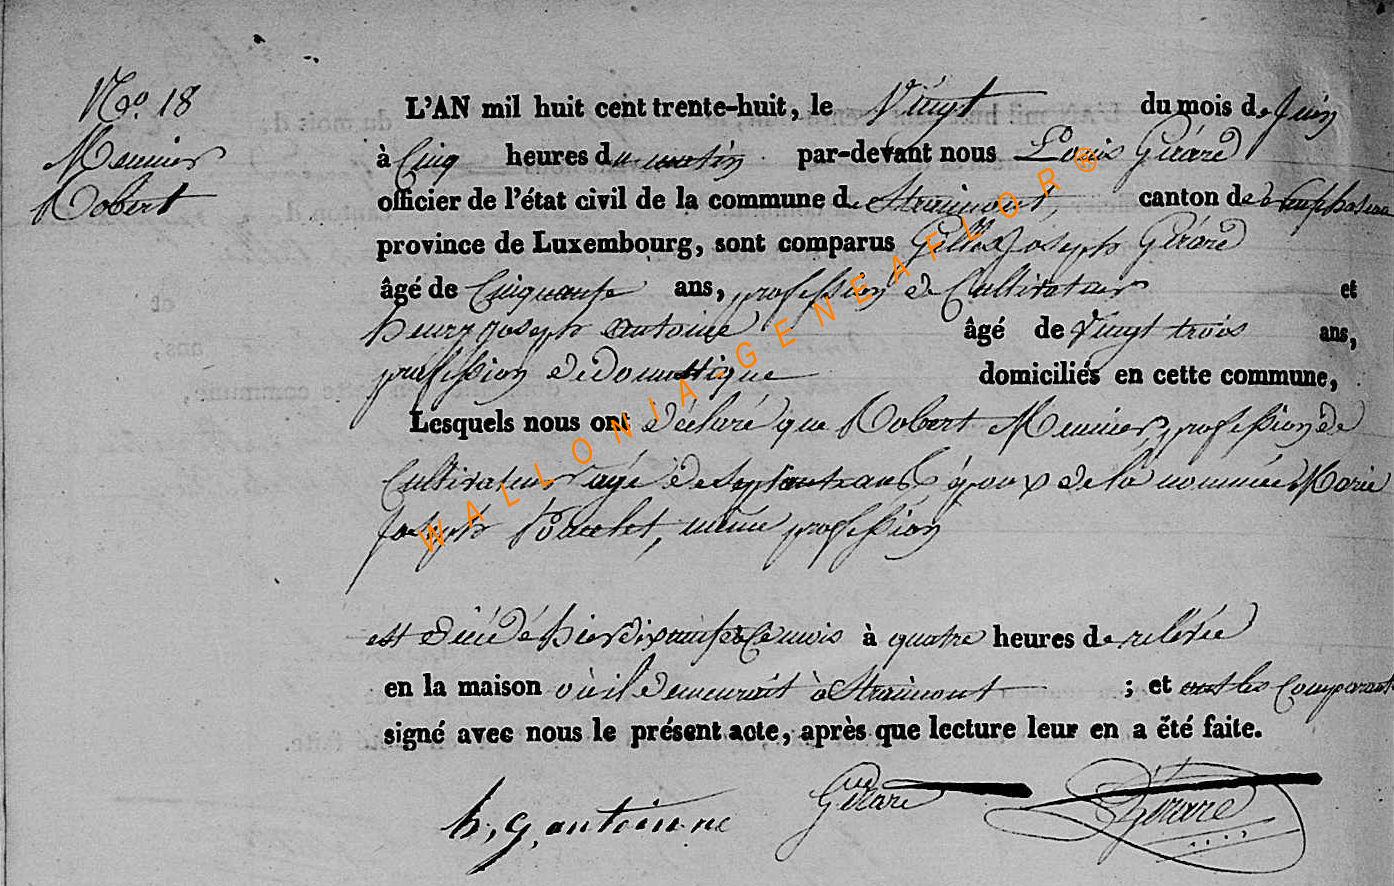 No. 18
Meunier
Robert
L'AN mil huit cent trente-huit, le Vingt du mois de Juin
à Cinq heures du matin par-devant nous Louis Gérard
officier de l'état civil de la commune de Straimont, canton de
province de Luxembourg, sont comparus Gilles Joseph Gérard
âgé de Cinquante ans, profession de Cultivateur et
henry joseph antoine âgé de Vingt trois ans,
profession de domestique domiciliés en cette commune,
Lesquels nous ont déclaré que Robert Meunier, profession de
Cultivateur agé de septante ans époux de la nommée Marie
Joseph même profession
est décédé hier dixneuf de Ce mois à quatre heures de relevée
en la maison où il demeurait à Straimont ; et ont les Comparant
signé avec nous le présent acte, après que lecture leur en a été faite.
h. j. antoinne Gérard Gérard
WALLONIA-GENEAFLOR®